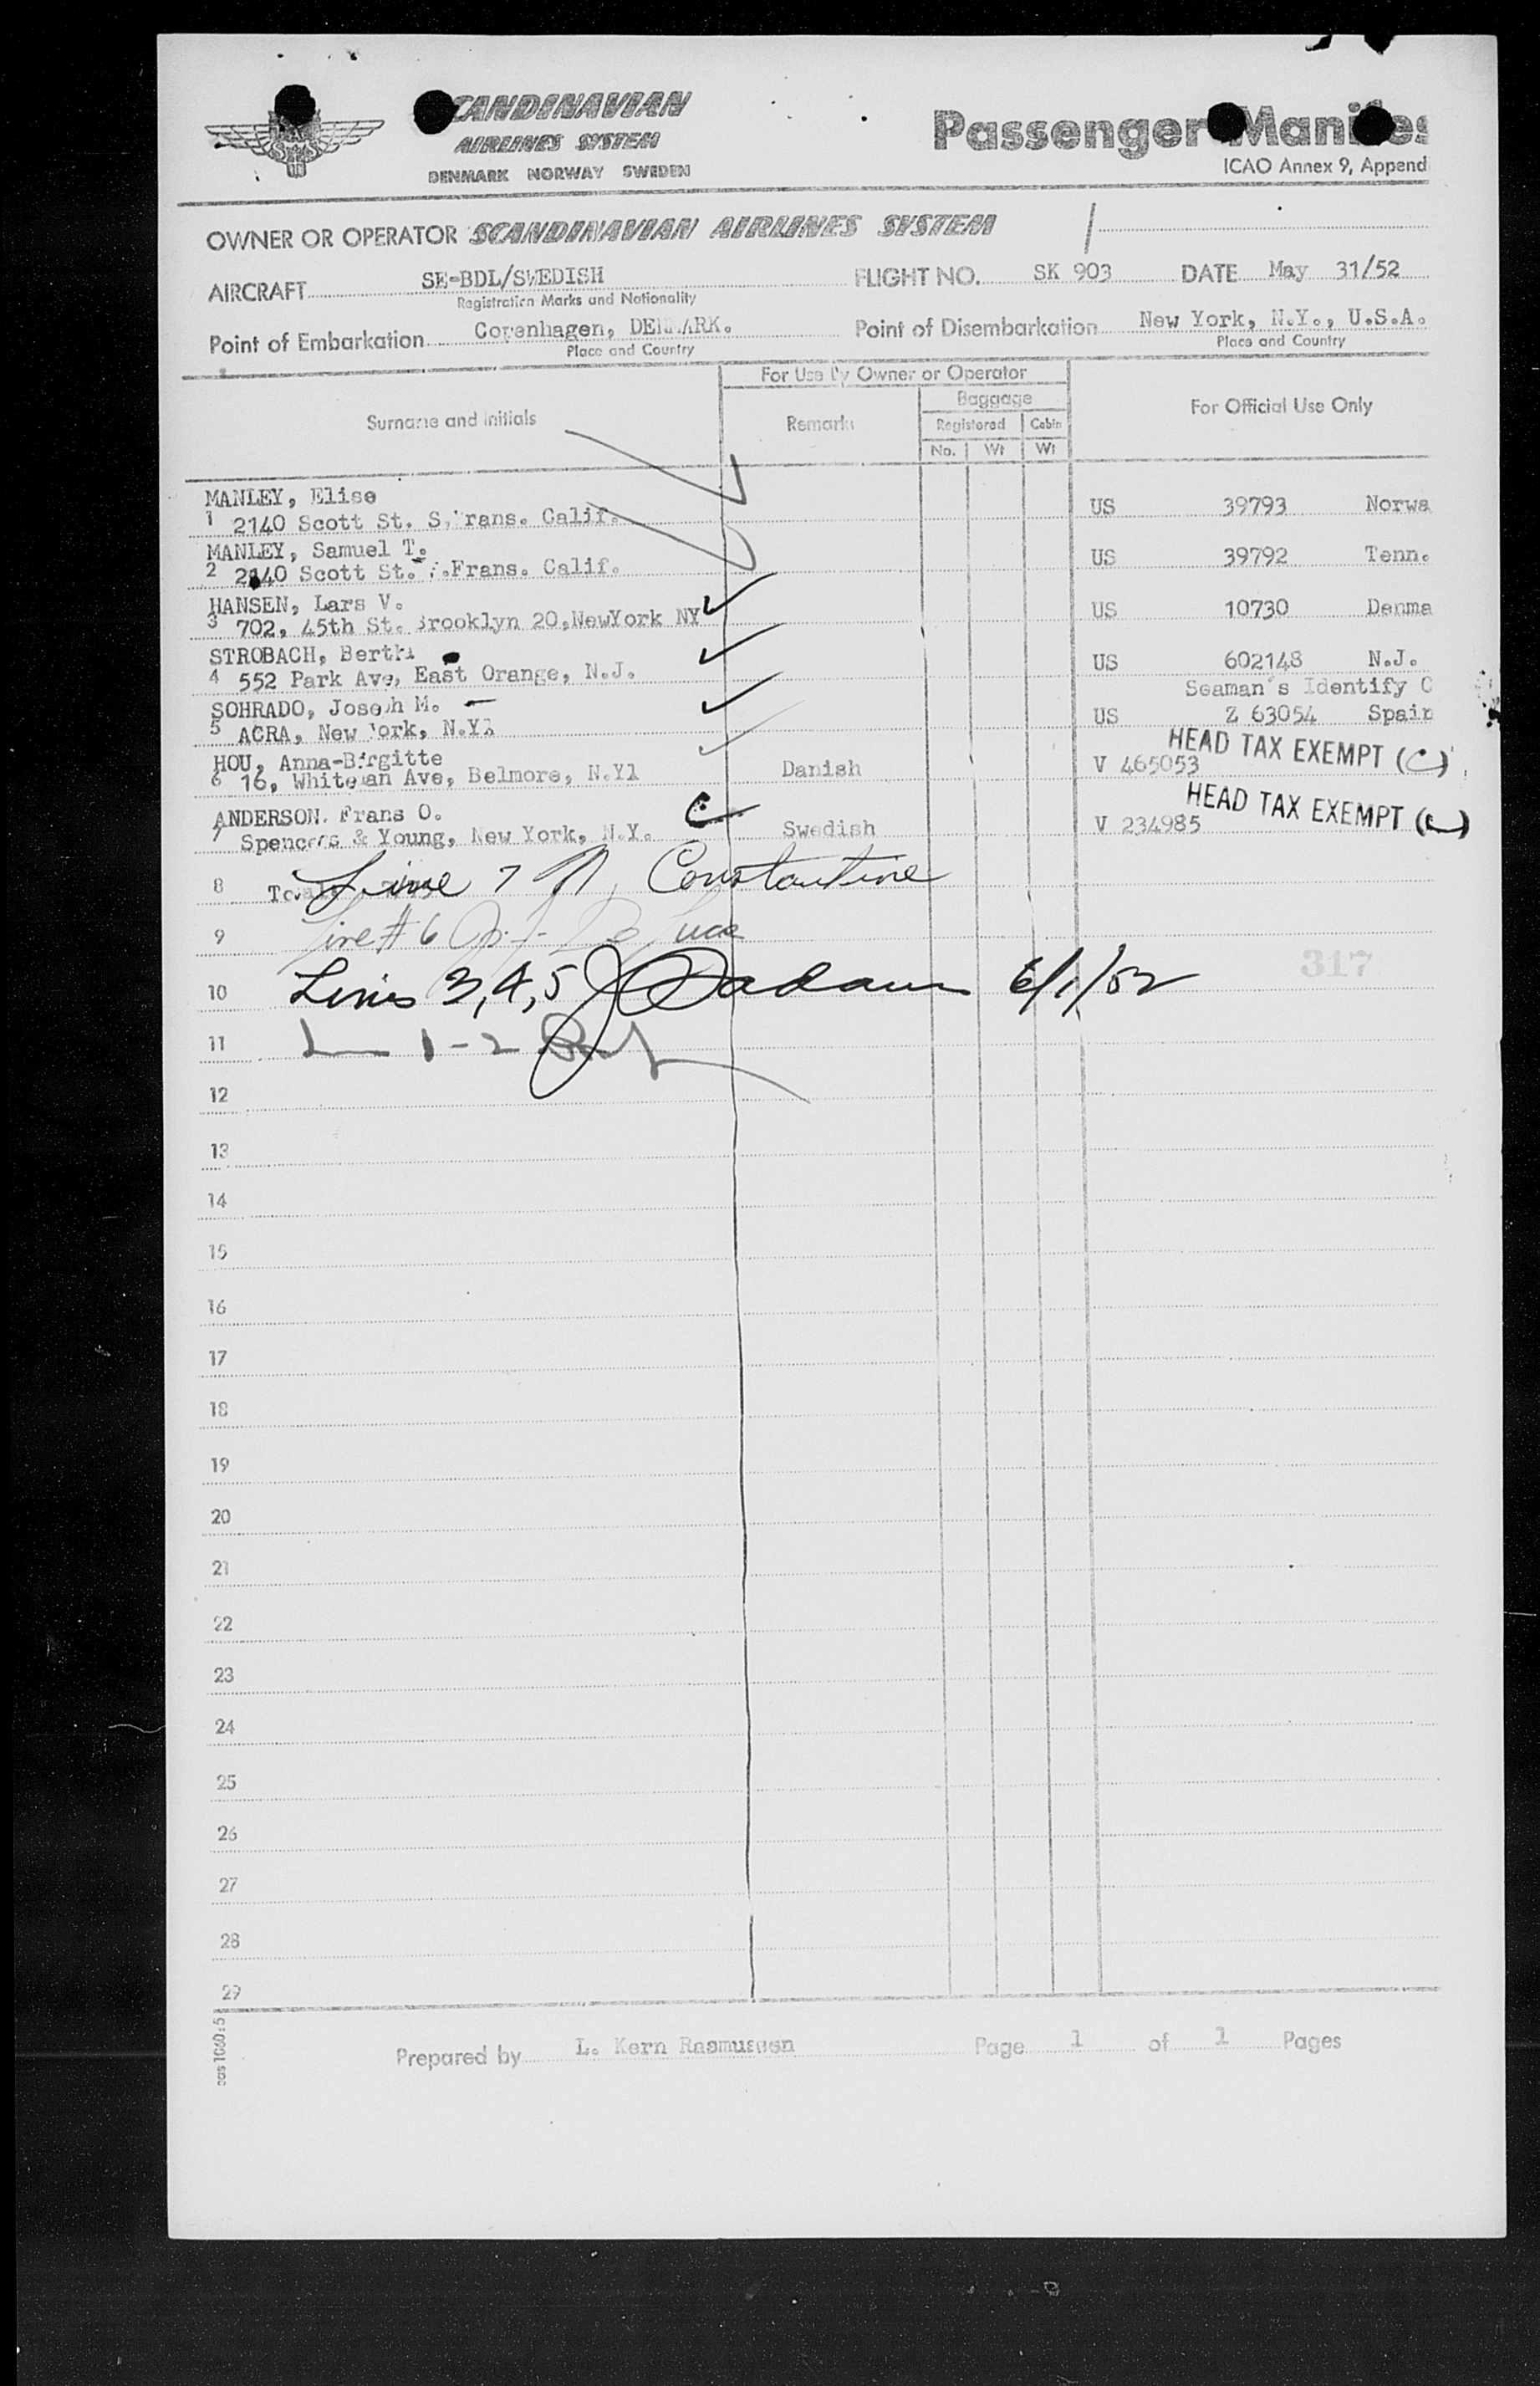 SCANDINAVIAN
AIRLINES SYSTEM
DENMARK NORWAY SWEDEN
Passenger Manifes
ICAO Annex 9, Append
OWNER OR OPERATOR SCANDINAVIAN AIRLINES SYSTEM
AIRCRAFT SE-BDL/SWEDISH FLIGHT NO. SK 903 DATE May 31/52
Registration Marks and Nationality
Point of Embarkation Copenhagen, DENMARK. Point of Disembarkation New York, N.Y., U.S.A.
Place and Country Place and Country
For Use by Owner or Operator
Surname and Initials Remarks Baggage For Official Use Only
Registered Cabin
No. Wt Wt
MANLEY, Elise
1 2140 Scott St. S.Frans. Calif. US 39793 Norwa
MANLEY, Samuel T.
2 2140 Scott St. S.Frans. Calif. US 39792 Tenn.
HANSEN, Lars V.
3 702, 45th St. Brooklyn 20,NewYork NY US 10730 Denma
STROBACH, Bertha
4 552 Park Ave, East Orange, N.J. US 602148 N.J.
Seaman's Identify C
SOHRADO, Joseph M.
5 ACRA, New York, N.Y. US Z 63054 Spain
HEAD TAX EXEMPT (C)
HOU, Anna-Birgitte
6 16, Whiteman Ave, Belmore, N.Y1 Danish V 465053
HEAD TAX EXEMPT
ANDERSON. Frans O.
7 Spencers & Young, New York, N.Y. Swedish V 234985
8 Line 7 Constantine
9 Line # 6 De Luca
10 Lines 3,4,5 6/1/52
317
11 1-2
12
13
14
15
16
17
18
19
20
21
22
23
24
25
26
27
28
29
sas 1060:5
Prepared by L. Kern Rasmussen Page 1 of 1 Pages